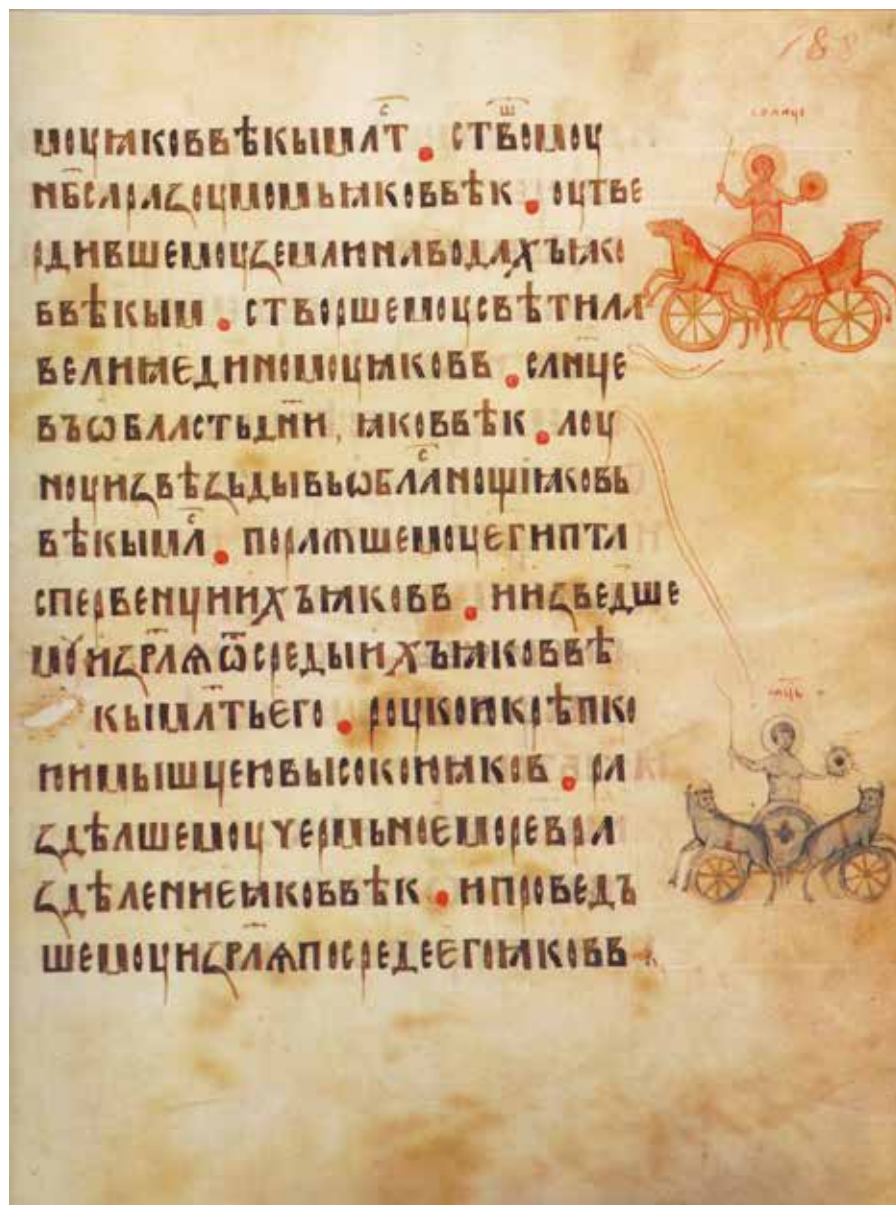 188
солнце
моуꙗковвѣкымлⷭ҇т . ствⷪ҇ршомоу
нб҃саразоумомьꙗковвѣк . оутве
рдившемоуземлюнаводахъꙗко
ввѣкым . створшемоусвѣтила
велиꙗединомоуꙗковв . слн҃це
въѡбластьдн҃и , ꙗковвѣк . лоу
ноуизвѣзьдывьѡблаⷭ҇нощіꙗковь
вѣкымлⷭ҇ . поразившемоуегипта
спервенциихъꙗковв . иизведше
моуизр҃лѧѿсредыихъꙗковвѣ
мц҃ь
кымлт҃ьего . роукоюкрѣпко
юимышцеювысокоюꙗков . ра
здѣлшемоучермьноеморевра
здѣлениеꙗковвѣк . ипроведъ
шемоуизр҃лѧпосредеегоꙗковв